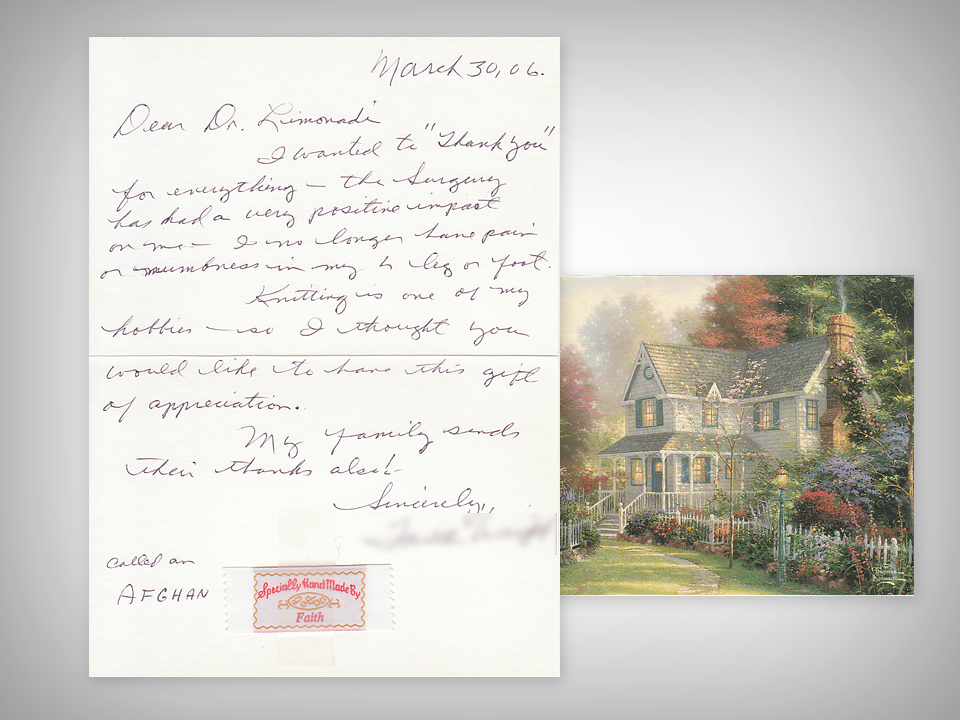 March 30, 06.
Dear Dr. Limonadi
I wanted to "Thank you"
for everything – the Surgery
has had a very positive impact
on me – I no longer have pain
or numbness in my L leg or foot.
Knitting is one of my
hobbies – so I thought you
would like to have this gift
of appreciation.
My family sends
their thanks also! –
Sincerely,
called an
AFGHAN
Specially Hand Made By
Faith